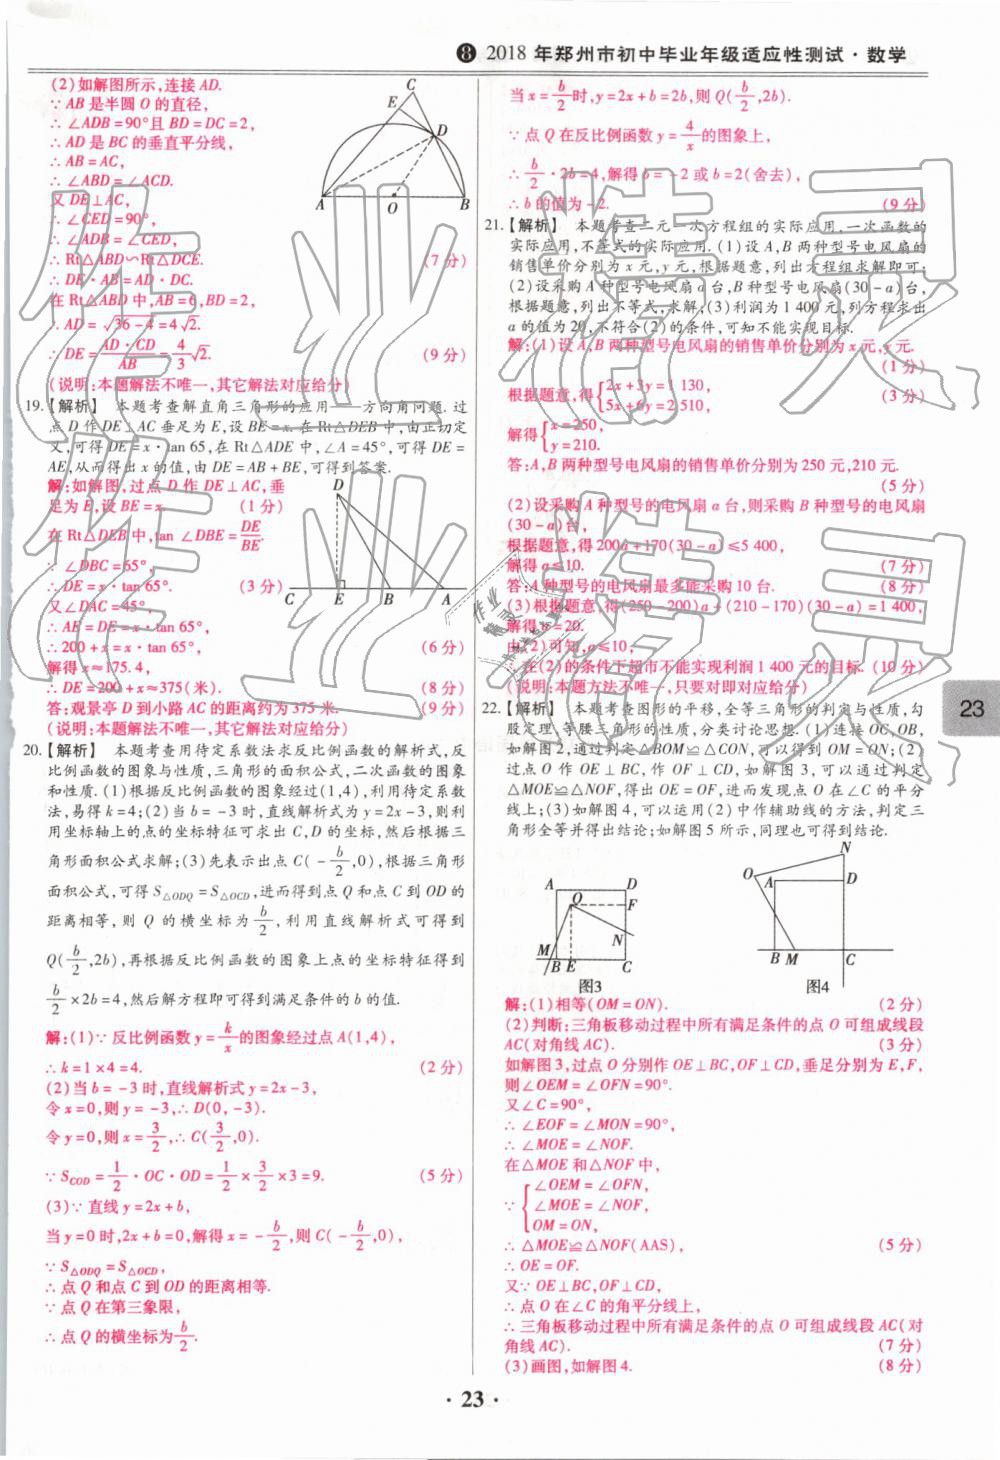 8 2018年郑州市初中毕业年级适应性测试·数学
(2)如解图所示,连接AD.
∵AB是半圆O的直径,
∴∠ADB=90°且BD=DC=2,
∴AD是BC的垂直平分线,
∴AB=AC,
∴∠ABD=∠ACD.
又DE⊥AC,
∴∠CED=90°,
∴∠ADB=∠CED,
∴Rt△ABD∽Rt△DCE. (7分)
∴DE·AB=AD·DC.
在Rt△ABD中,AB=6,BD=2,
∴AD=√36-4=4√2.
∴DE=AD·CD/AB=4/3√2. (9分)
(说明:本题解法不唯一,其它解法对应给分)
C
E
D
A O B
19.【解析】 本题考查解直角三角形的应用——方向角问题.过
点D作DE⊥AC垂足为E,设BE=x.在Rt△DEB中,由正切定
义,可得DE=x·tan 65,在Rt△ADE中,∠A=45°,可得DE=
AE,从而得出x的值,由DE=AB+BE,可得到答案.
解:如解图,过点D作DE⊥AC,垂
足为E,设BE=x. (1分)
在Rt△DEB中,tan ∠DBE=DE/BE.
∵∠DBC=65°,
∴DE=x·tan 65°. (3分)
又∠DAC=45°,
∴AE=DE=x·tan 65°,
∴200+x=x·tan 65°, (6分)
解得x≈175.4,
∴DE=200+x≈375(米). (8分)
答:观景亭D到小路AC的距离约为375米. (9分)
(说明:本题解法不唯一,其它解法对应给分)
D
C E B A
20.【解析】 本题考查用待定系数法求反比例函数的解析式,反
比例函数的图象与性质,三角形的面积公式,二次函数的图象
和性质.(1)根据反比例函数经过(1,4),利用待定系数
法,易得k=4;(2)当b=-3时,直线解析式为y=2x-3,则利
用坐标轴上的点的坐标特征可求出C,D的坐标,然后根据三
角形面积公式求解;(3)先表示出点C(-b/2,0),根据三角形
面积公式,可得S△ODQ=S△OCD,进而得到点Q和点C到OD的
距离相等,则Q的横坐标为b/2,利用直线解析式可得到
Q(b/2,2b),再根据反比例函数的图象上点的坐标特征得到
b/2×2b=4,然后解方程即可得到满足条件的b的值.
解:(1)∵反比例函数y=k/x的图象经过点A(1,4),
∴k=1×4=4. (2分)
(2)当b=-3时,直线解析式y=2x-3,
令x=0,则y=-3,∴D(0,-3).
令y=0,则x=3/2,∴C(3/2,0).
∵SCOD=1/2·OC·OD=1/2×3/2×3=9. (5分)
(3)∵直线y=2x+b,
当y=0时,2x+b=0,解得x=-b/2,则C(-b/2,0),
∵S△ODQ=S△OCD,
∴点Q和点C到OD的距离相等.
∵点Q在第三象限,
∴点Q的横坐标为b/2.
当x=b/2时,y=2x+b=2b,则Q(b/2,2b).
∵点Q在反比例函数y=4/x的图象上,
∴b/2·2b=4,解得b=-2或b=2(舍去),
∴b的值为-2. (9分)
21.【解析】 本题考查二元一次方程组的实际应用,一次函数的
实际应用,不等式的实际应用.(1)设A,B两种型号电风扇的
销售单价分别为x元,y元,根据题意,列出方程组求解即可;
(2)设采购A种型号电风扇a台,B种型号电风扇(30-a)台,
根据题意,列出不等式,求解;(3)利润为1 400元,列方程求出
a的值为20,不符合(2)的条件,可知不能实现目标.
解:(1)设A,B两种型号电风扇的销售单价分别为x元,y元.
(1分)
根据题意,得{2x+3y=1 130,
5x+6y=2 510, (3分)
解得{x=250,
y=210.
答:A,B两种型号电风扇的销售单价分别为250元,210元.
(5分)
(2)设采购A种型号的电风扇a台,则采购B种型号的电风扇
(30-a)台,
根据题意,得200a+170(30-a)≤5 400,
解得a≤10. (7分)
答:A种型号的电风扇最多能采购10台. (8分)
(3)根据题意,得(250-200)a+(210-170)(30-a)=1 400,
解得a=20.
由(2)可知,a≤10,
∴在(2)的条件下超市不能实现利润1 400元的目标. (10分)
(说明:本题方法不唯一,只要对即对应给分)
22.【解析】 本题考查图形的平移,全等三角形的判定与性质,勾
股定理,等腰三角形的性质,分类讨论思想.(1)连接OC,OB,
如解图2,通过判定△BOM≌△CON,可以得到OM=ON;(2)
过点O作OE⊥BC,作OF⊥CD,如解图3,可以通过判定
△MOE≌△NOF,得出OE=OF,进而发现点O在∠C的平分
线上;(3)如解图4,可以运用(2)中作辅助线的方法,判定三
角形全等并得出结论;如解图5所示,同理也可得到结论.
A D
O F
N
M
B E C
图3
N
O
A D
B M C
图4
解:(1)相等(OM=ON). (2分)
(2)判断:三角板移动过程中所有满足条件的点O可组成线段
AC(对角线AC). (3分)
如解图3,过点O分别作OE⊥BC,OF⊥CD,垂足分别为E,F,
则∠OEM=∠OFN=90°.
又∠C=90°,
∴∠EOF=∠MON=90°,
∴∠MOE=∠NOF.
在△MOE和△NOF中,
∵{∠OEM=∠OFN,
∠MOE=∠NOF,
OM=ON,
∴△MOE≌△NOF(AAS), (5分)
∴OE=OF.
又∵OE⊥BC,OF⊥CD,
∴点O在∠C的角平分线上,
∴三角板移动过程中所有满足条件的点O可组成线段AC(对
角线AC). (7分)
(3)画图,如解图4. (8分)
23
·23·
作业精灵
作业精灵